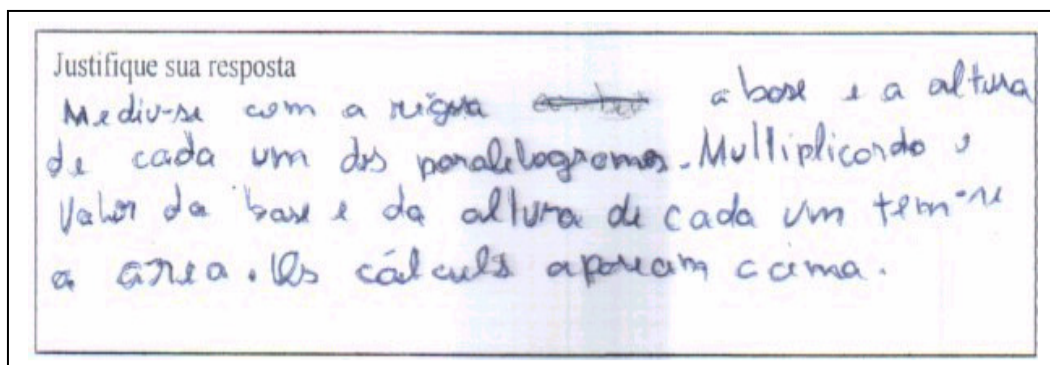 Justifique sua resposta
Mediu-se com a régua a base e a altura
de cada um dos paralelogramos. Multiplicando o
valor da base e da altura de cada um tem-se
a área. Os cálculs aparecem acima.